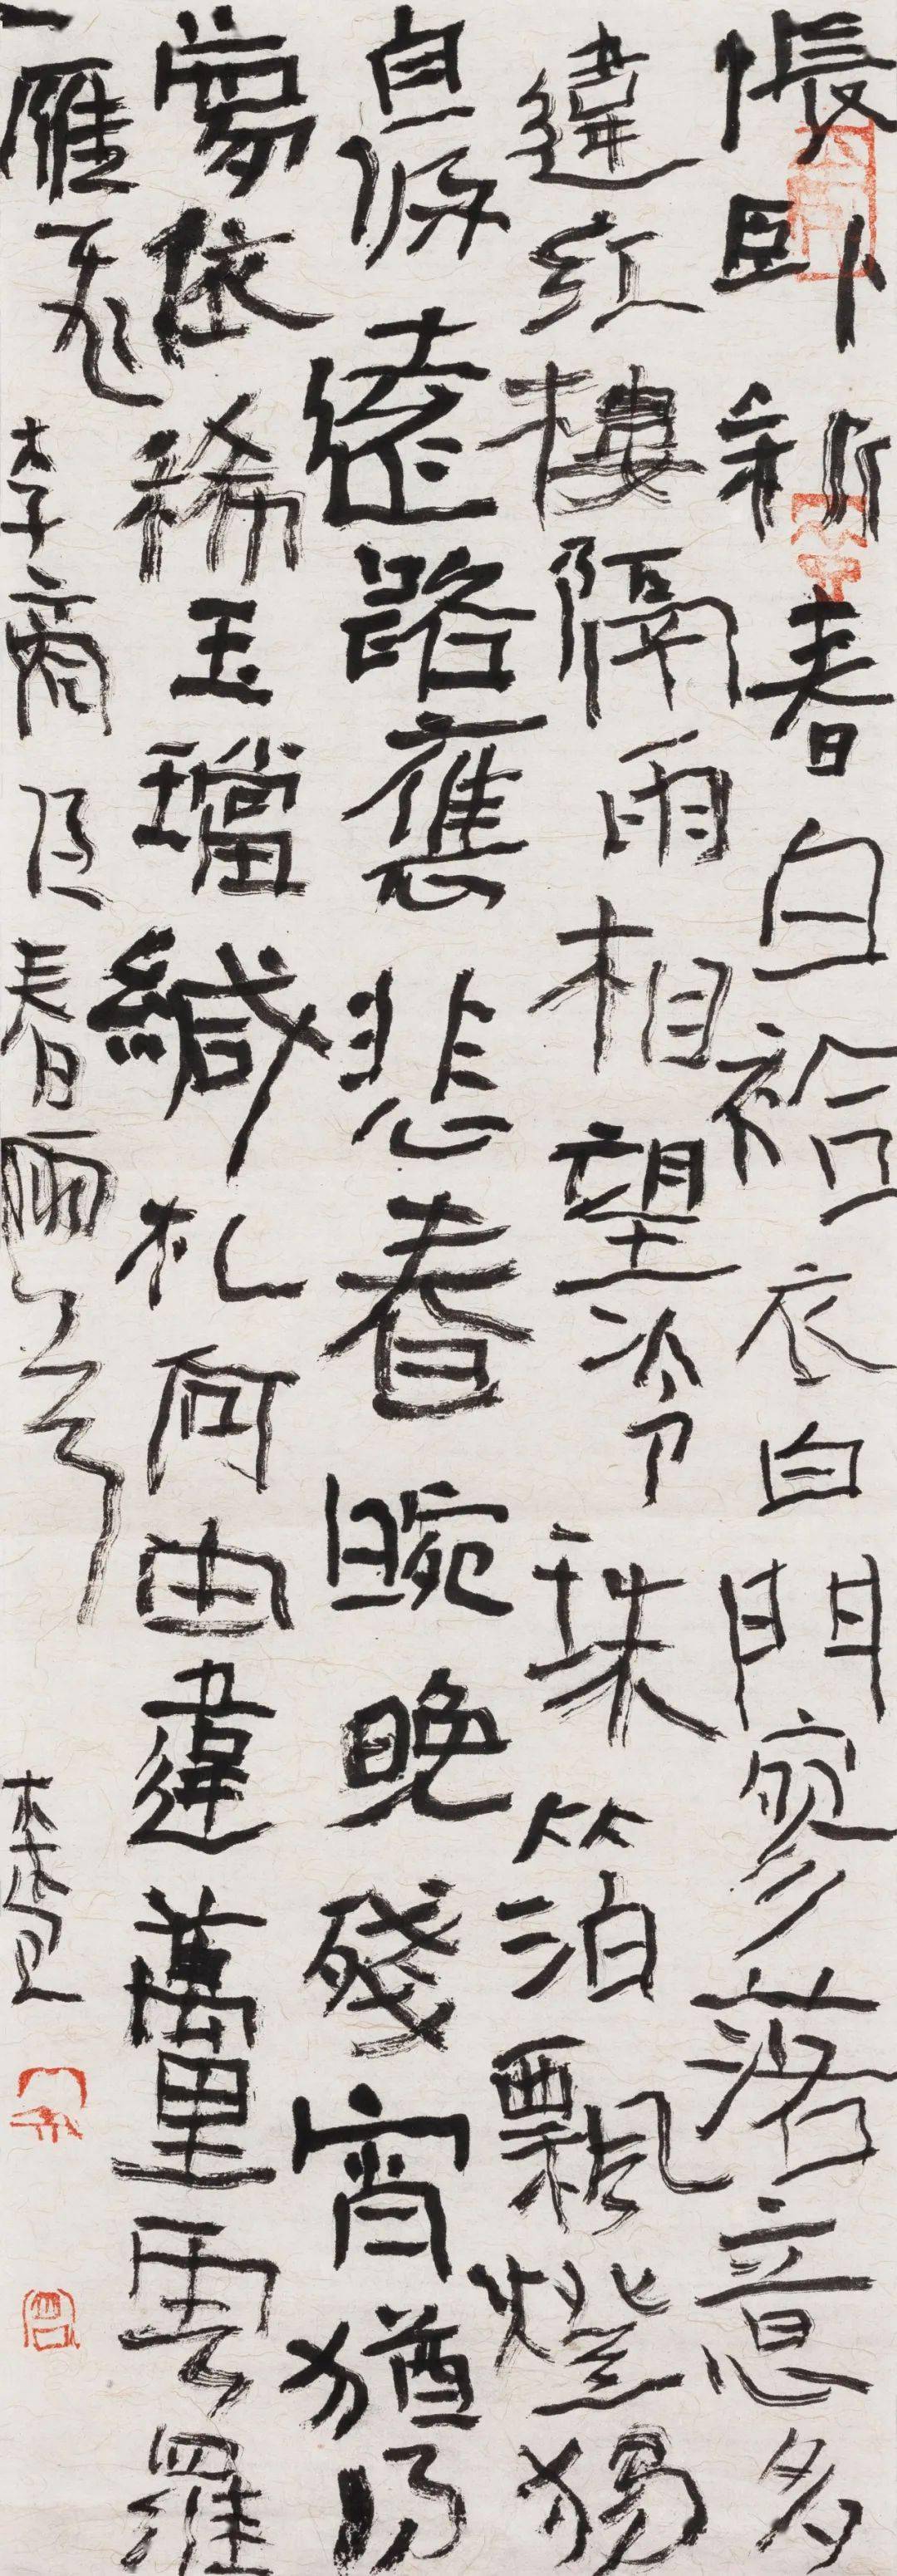 悵卧新春白袷衣白門寥落意多
違紅樓隔雨相望冷珠箔飄燈獨
自歸遠路應悲春晼晚殘宵猶得
夢依稀玉璫緘札何由達萬里雲羅
一雁飛 李商隱春雨